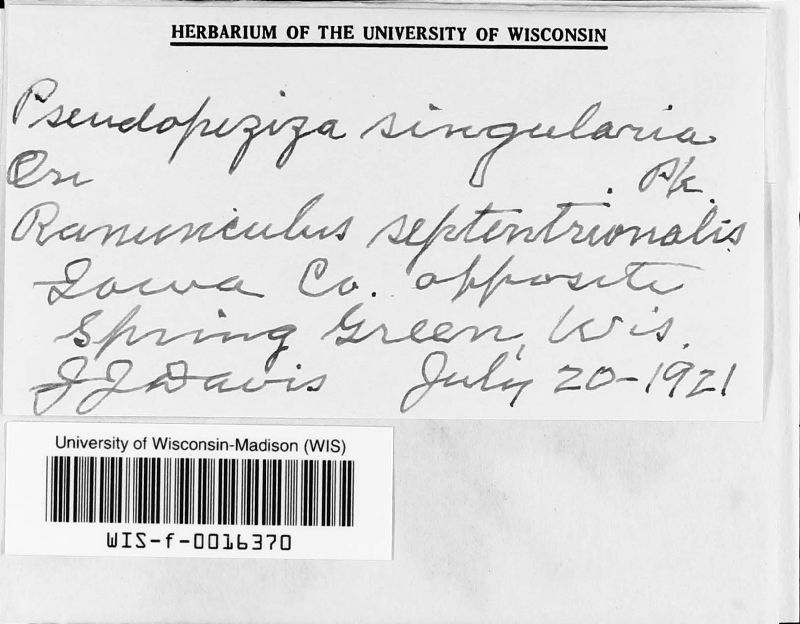 HERBARIUM OF THE UNIVERSITY OF WISCONSIN
Pseudopeziza singularia
On Pk.
Ranunculus septentrionalis
Iowa Co. opposite
Spring Green, Wis.
JJDavis July 20-1921
University of Wisconsin-Madison (WIS)
WIS-f-0016370